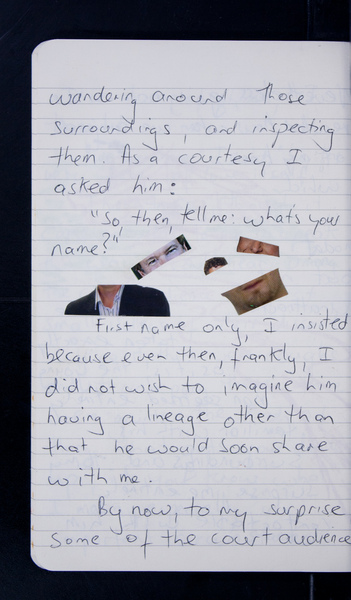 wandering around those
surroundings, and inspecting
them. As a courtesy I
asked him:
"So, then, tell me: what's your
name?"
First name only, I insisted
because even then, frankly, I
did not wish to imagine him
having a lineage other than
that he would soon share
with me.
By now, to my surprise
some of the court audience